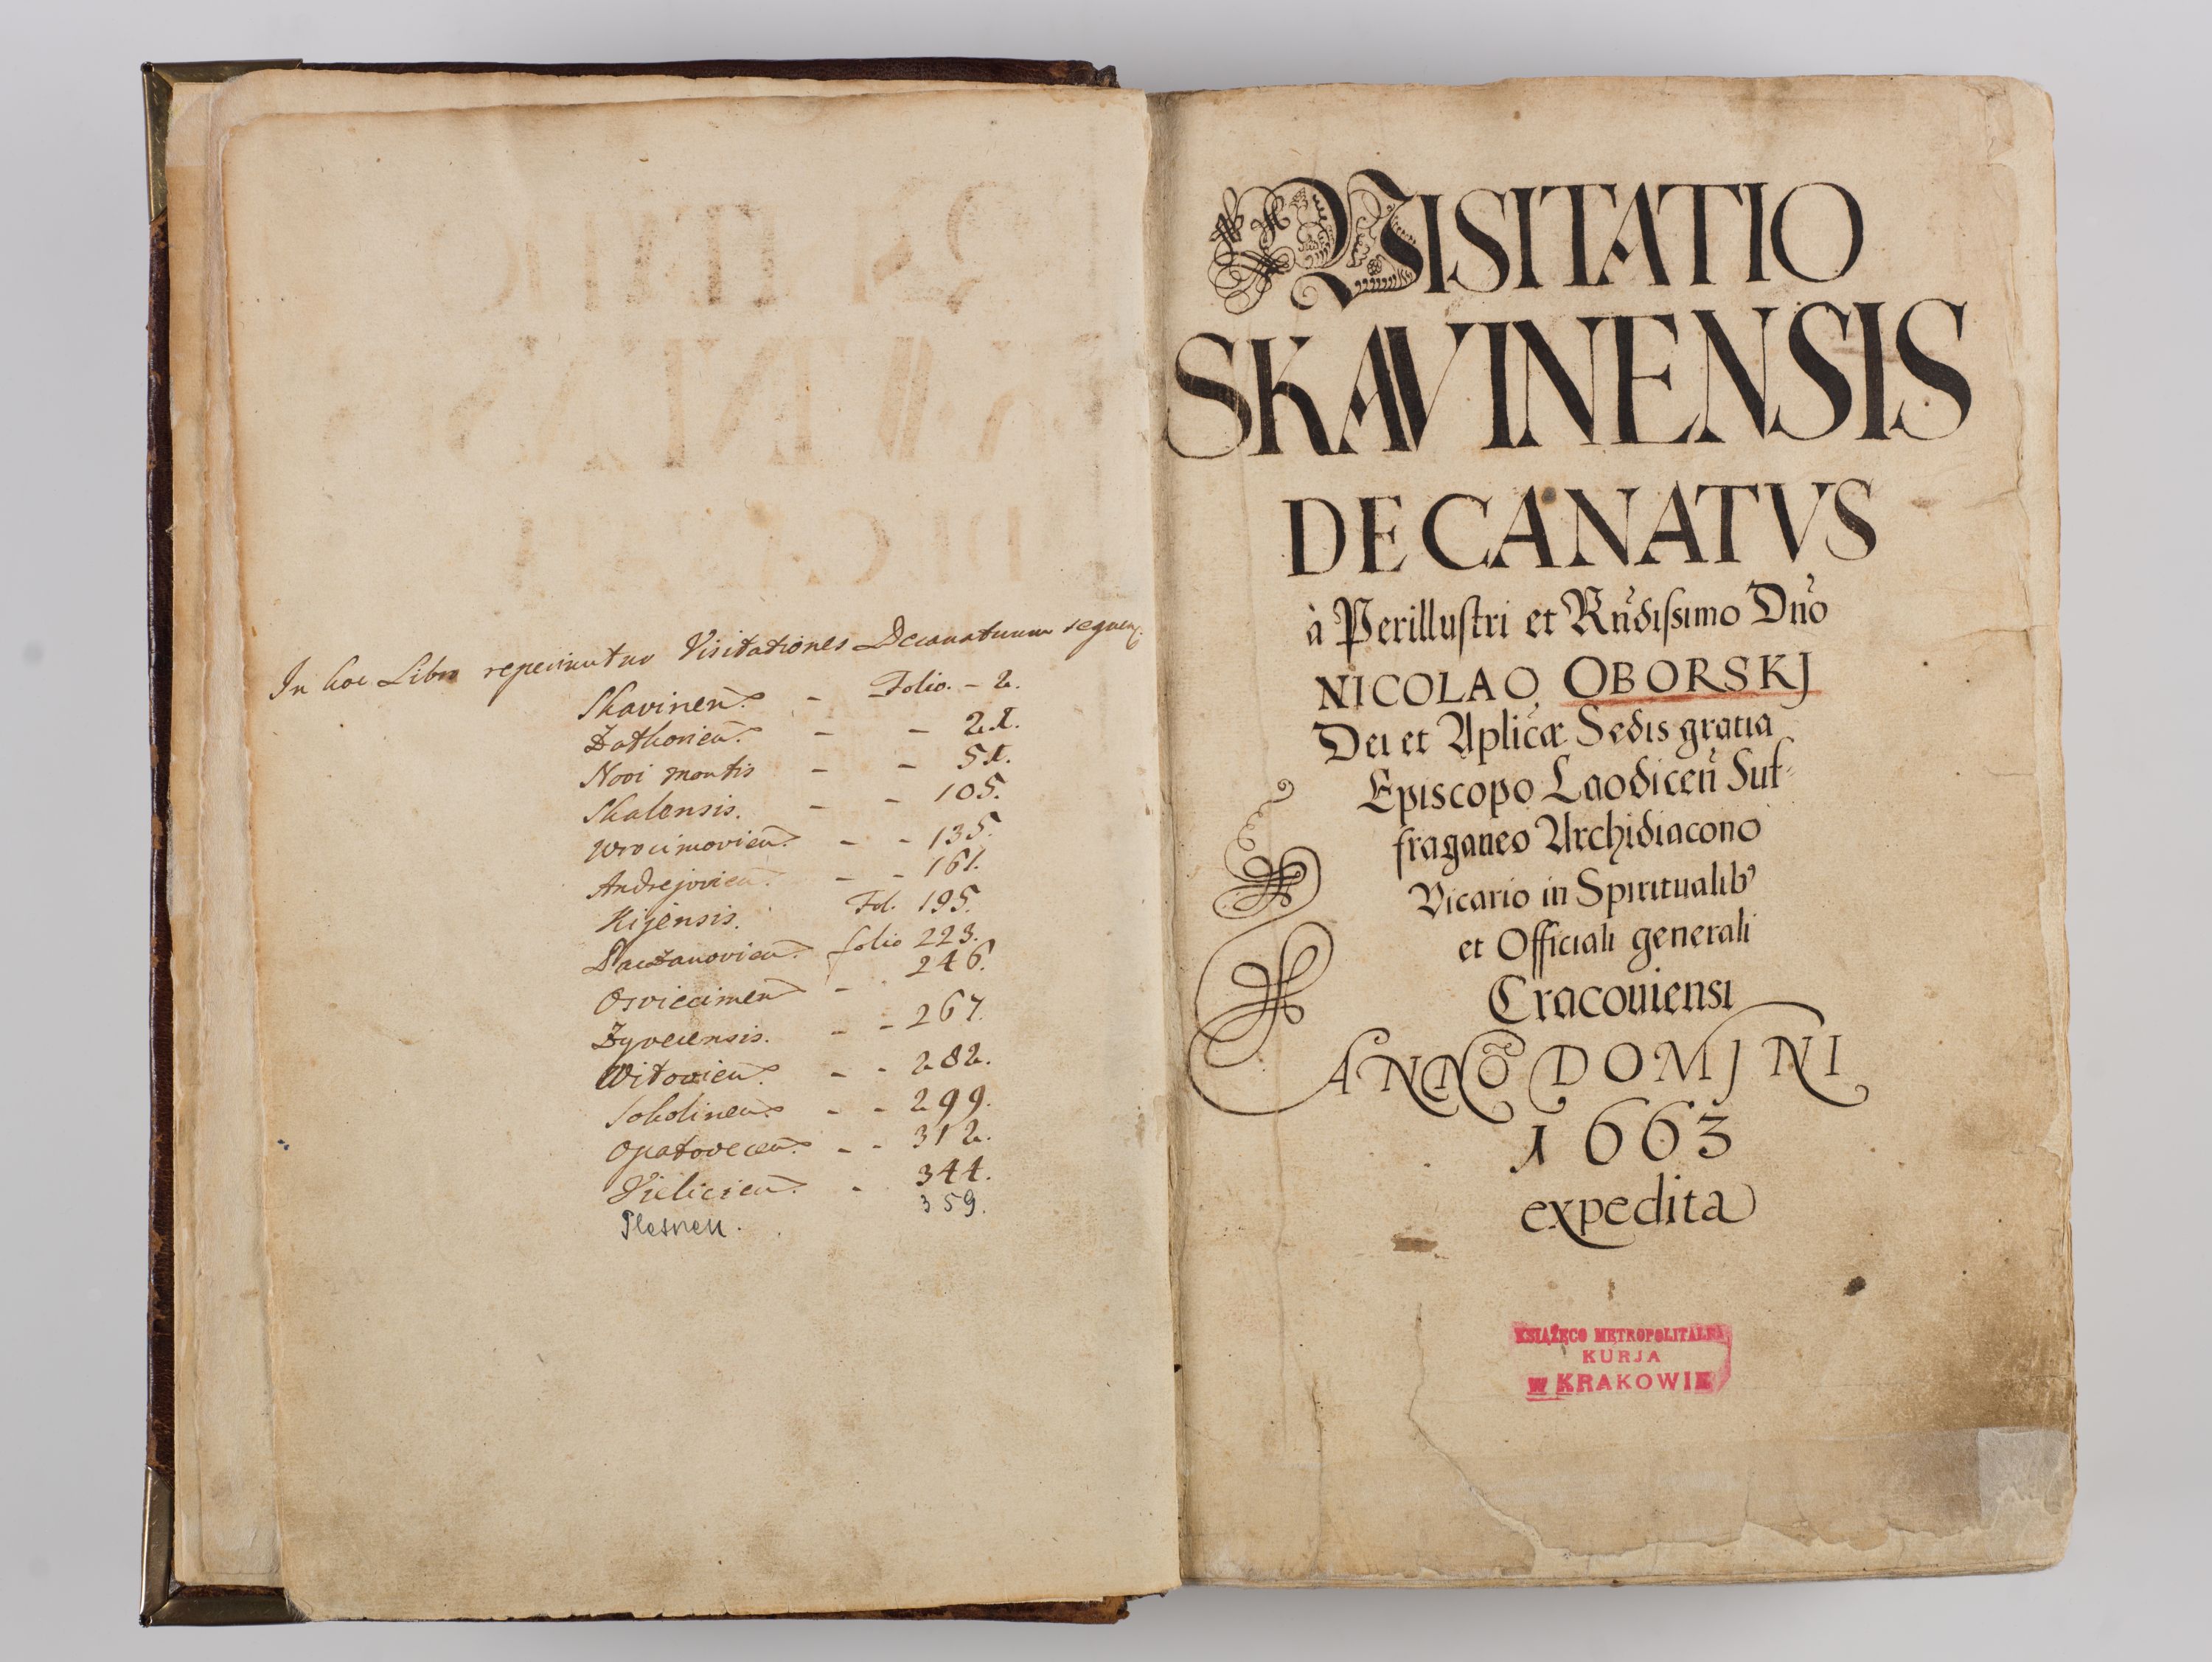 In hoc Libro reperiuntur Visitationes Decanatuum sequen.
Skavinen. - Folio. - 2.
Zathorien. - - 24.
Novi montis - - 54.
Skalensis. - - 105.
Wrocimovien. - - 135.
Andrejovien. - - 161.
Kijensis. Fol. 195.
Paczanovien. folio 223.
Osviecimen - . 246.
Zyvecensis. - - 267.
Witovien. - - 282.
Sokolinen. - - 299.
Opatovecen. - - 312.
Vielicien. - 344.
Plesnen. 359.
VISITATIO
SKAVINENSIS
DECANATVS
à Perillustri et Rndissimo Dno
NICOLAO OBORSKJ
Dei et Aplicæ Sedis gratia
Episcopo Laodicen Suf-
fraganeo Archidiacono
Vicario in Spiritualib9
et Officiali generali
Cracouiensi
ANNO DOMJNI
1663
expedita
KSIĄŻĘCO METROPOLITALNA
KURJA
w KRAKOWIE